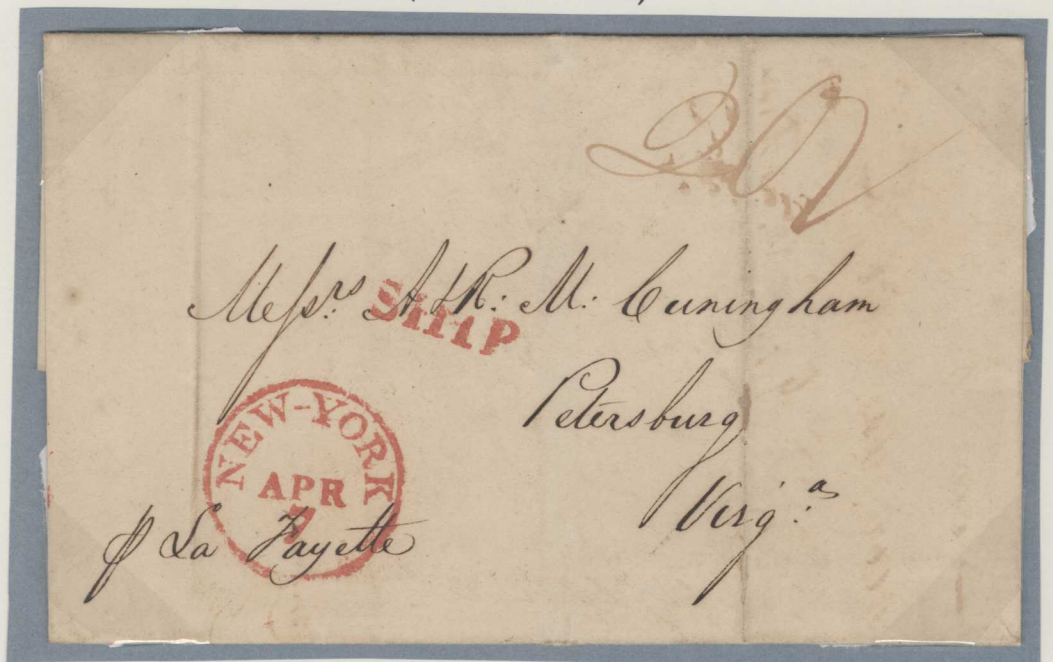 Messrs: A & R: M: Cuningham
SHIP
Petersburg
NEW-YORK
APR
7
Virga:
p La Fayette